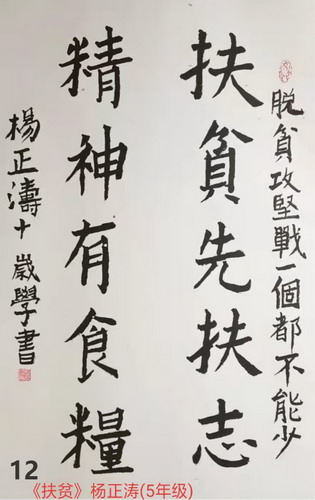 脫貧攻堅戰一個都不能少
扶貧先扶志
精神有食糧
楊正濤十歲學書
12
《扶贫》杨正涛(5年级)